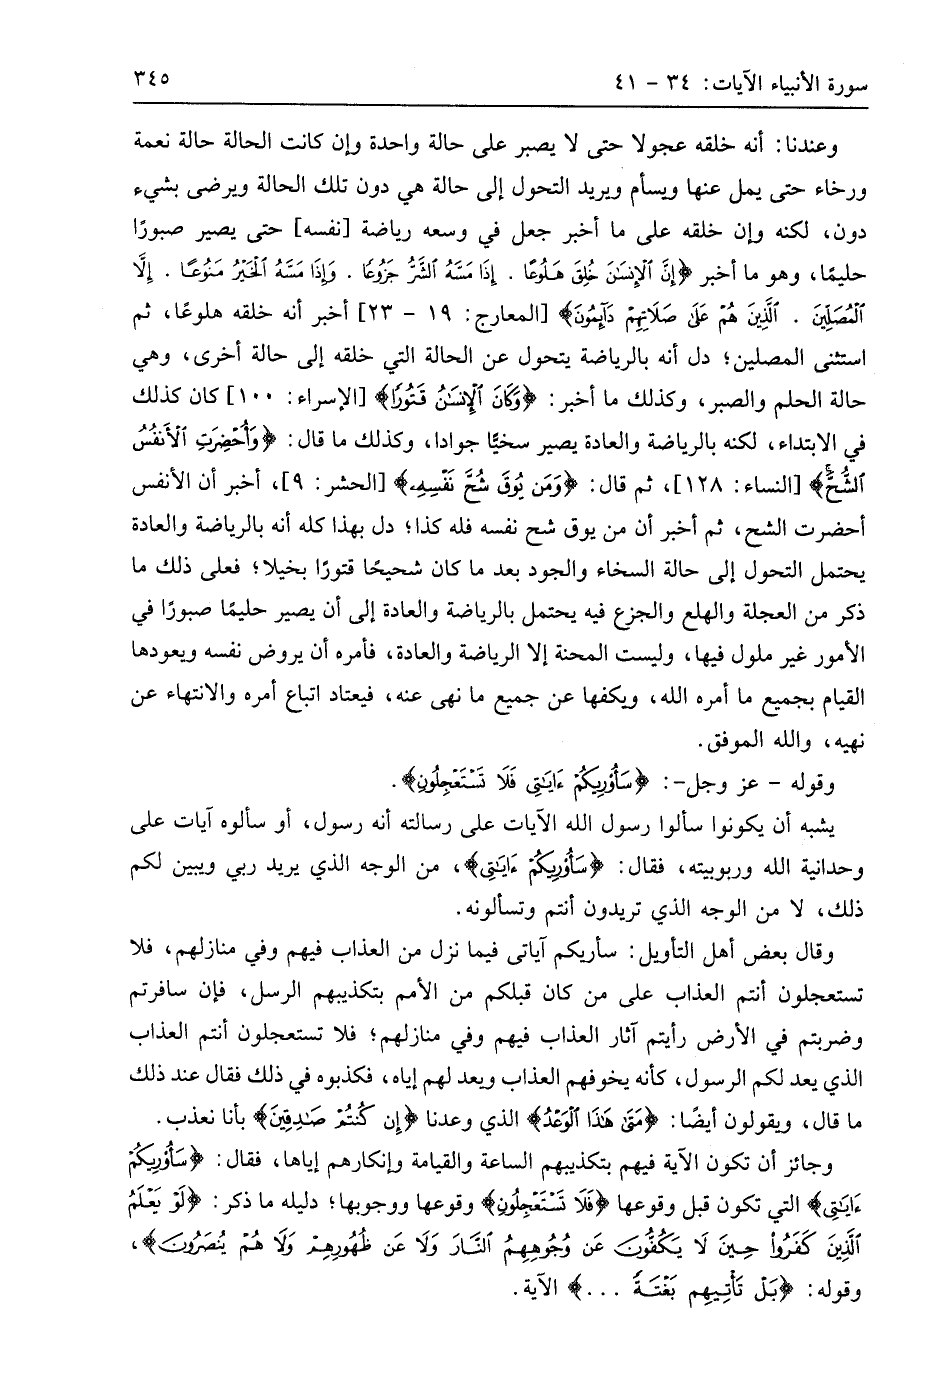 سورة الأنبياء الآيات: ٣٤ - ٤١ ٣٤٥
وعندنا: أنه خلقه عجولا حتى لا يصبر على حالة واحدة وإن كانت الحالة حالة نعمة
ورخاء حتى يمل عنها ويسأم ويريد التحول إلى حالة هي دون تلك الحالة ويرضى بشيء
دون، لكنه وإن خلقه على ما أخبر جعل في وسعه رياضة [نفسه] حتى يصير صبورًا
حليمًا، وهو ما أخبر ﴿إِنَّ ٱلْإِنسَٰنَ خُلِقَ هَلُوعًا . إِذَا مَسَّهُ ٱلشَّرُّ جَزُوعًا . وَإِذَا مَسَّهُ ٱلْخَيْرُ مَنُوعًا . إِلَّا
ٱلْمُصَلِّينَ . ٱلَّذِينَ هُمْ عَلَىٰ صَلَاتِهِمْ دَآئِمُونَ﴾ [المعارج: ١٩ - ٢٣] أخبر أنه خلقه هلوعًا، ثم
استثنى المصلين؛ دل أنه بالرياضة يتحول عن الحالة التي خلقه إلى حالة أخرى، وهي
حالة الحلم والصبر، وكذلك ما أخبر: ﴿وَكَانَ ٱلْإِنسَٰنُ قَتُورًا﴾ [الإسراء: ١٠٠] كان كذلك
في الابتداء، لكنه بالرياضة والعادة يصير سخيًّا جوادا، وكذلك ما قال: ﴿وَأُحْضِرَتِ ٱلْأَنفُسُ
ٱلشُّحَّ﴾ [النساء: ١٢٨]، ثم قال: ﴿وَمَن يُوقَ شُحَّ نَفْسِهِۦ﴾ [الحشر: ٩]، أخبر أن الأنفس
أحضرت الشح، ثم أخبر أن من يوق شح نفسه فله كذا؛ دل بهذا كله أنه بالرياضة والعادة
يحتمل التحول إلى حالة السخاء والجود بعد ما كان شحيحًا قتورًا بخيلا؛ فعلى ذلك ما
ذكر من العجلة والهلع والجزع فيه يحتمل بالرياضة والعادة إلى أن يصير حليمًا صبورًا في
الأمور غير ملول فيها، وليست المحنة إلا الرياضة والعادة، فأمره أن يروض نفسه ويعودها
القيام بجميع ما أمره الله، ويكفها عن جميع ما نهى عنه، فيعتاد اتباع أمره والانتهاء عن
نهيه، والله الموفق.
وقوله - عز وجل-: ﴿سَأُو۟رِيكُمْ ءَايَٰتِى فَلَا تَسْتَعْجِلُونِ﴾.
يشبه أن يكونوا سألوا رسول الله الآيات على رسالته أنه رسول، أو سألوه آيات على
وحدانية الله وربوبيته، فقال: ﴿سَأُو۟رِيكُمْ ءَايَٰتِى﴾، من الوجه الذي يريد ربي ويبين لكم
ذلك، لا من الوجه الذي تريدون أنتم وتسألونه.
وقال بعض أهل التأويل: سأريكم آياتى فيما نزل من العذاب فيهم وفي منازلهم، فلا
تستعجلون أنتم العذاب على من كان قبلكم من الأمم بتكذيبهم الرسل، فإن سافرتم
وضربتم في الأرض رأيتم آثار العذاب فيهم وفي منازلهم؛ فلا تستعجلون أنتم العذاب
الذي يعد لكم الرسول، كأنه يخوفهم العذاب ويعد لهم إياه، فكذبوه في ذلك فقال عند ذلك
ما قال، ويقولون أيضًا: ﴿مَتَىٰ هَٰذَا ٱلْوَعْدُ﴾ الذي وعدنا ﴿إِن كُنتُمْ صَٰدِقِينَ﴾ بأنا نعذب.
وجائز أن تكون الآية فيهم بتكذيبهم الساعة والقيامة وإنكارهم إياها، فقال: ﴿سَأُو۟رِيكُمْ
ءَايَٰتِى﴾ التي تكون قبل وقوعها ﴿فَلَا تَسْتَعْجِلُونِ﴾ وقوعها ووجوبها؛ دليله ما ذكر: ﴿لَوْ يَعْلَمُ
ٱلَّذِينَ كَفَرُوا۟ حِينَ لَا يَكُفُّونَ عَن وُجُوهِهِمُ ٱلنَّارَ وَلَا عَن ظُهُورِهِمْ وَلَا هُمْ يُنصَرُونَ﴾،
وقوله: ﴿بَلْ تَأْتِيهِم بَغْتَةً ...﴾ الآية.